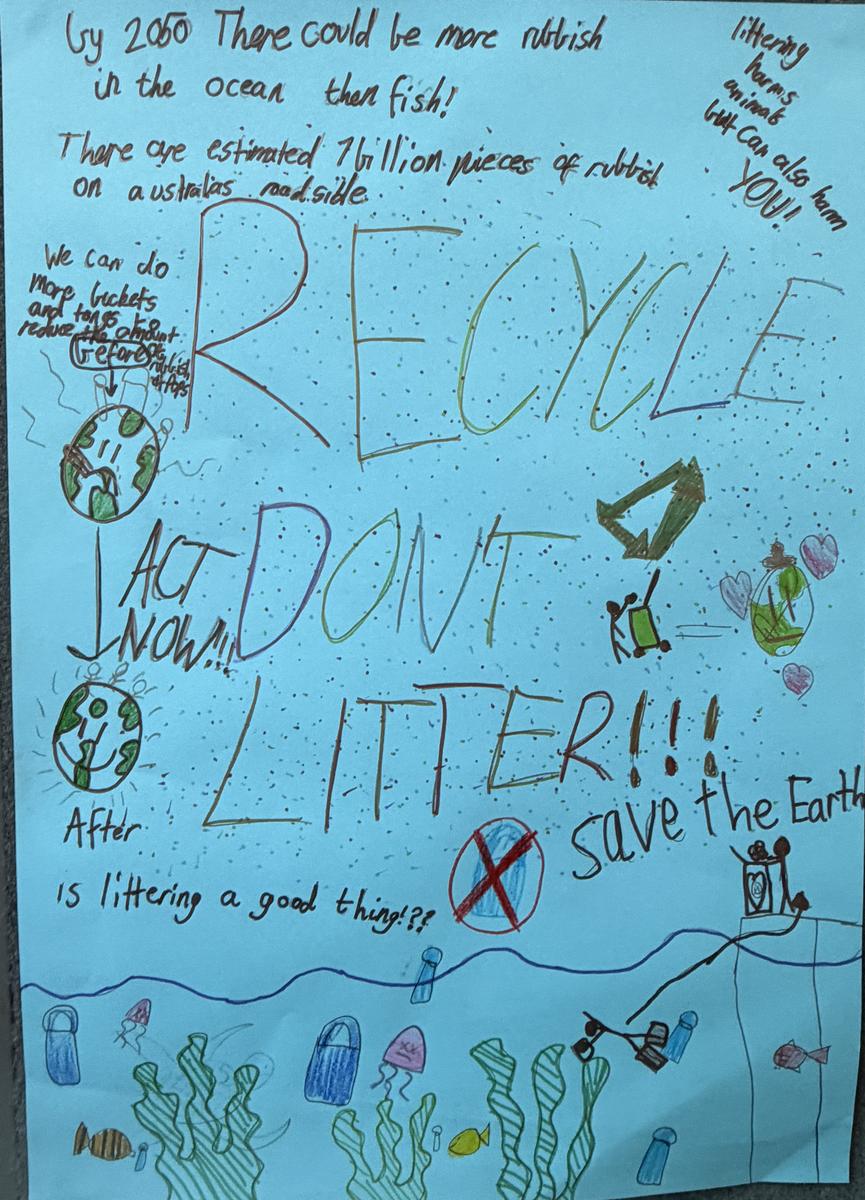 by 2050 There could be more rubbish
in the ocean then fish!
There are estimated 7billion pieces of rubbish
on australias roadside
littering
harms
animals
but can also harm
YOU!
We can do
more buckets
and tongs to
reduce the amount
of
rubbish
drops
Before
RECYCLE
ACT
NOW!!!
DONT
LITTER!!!
After
save the Earth
is littering a good thing!??